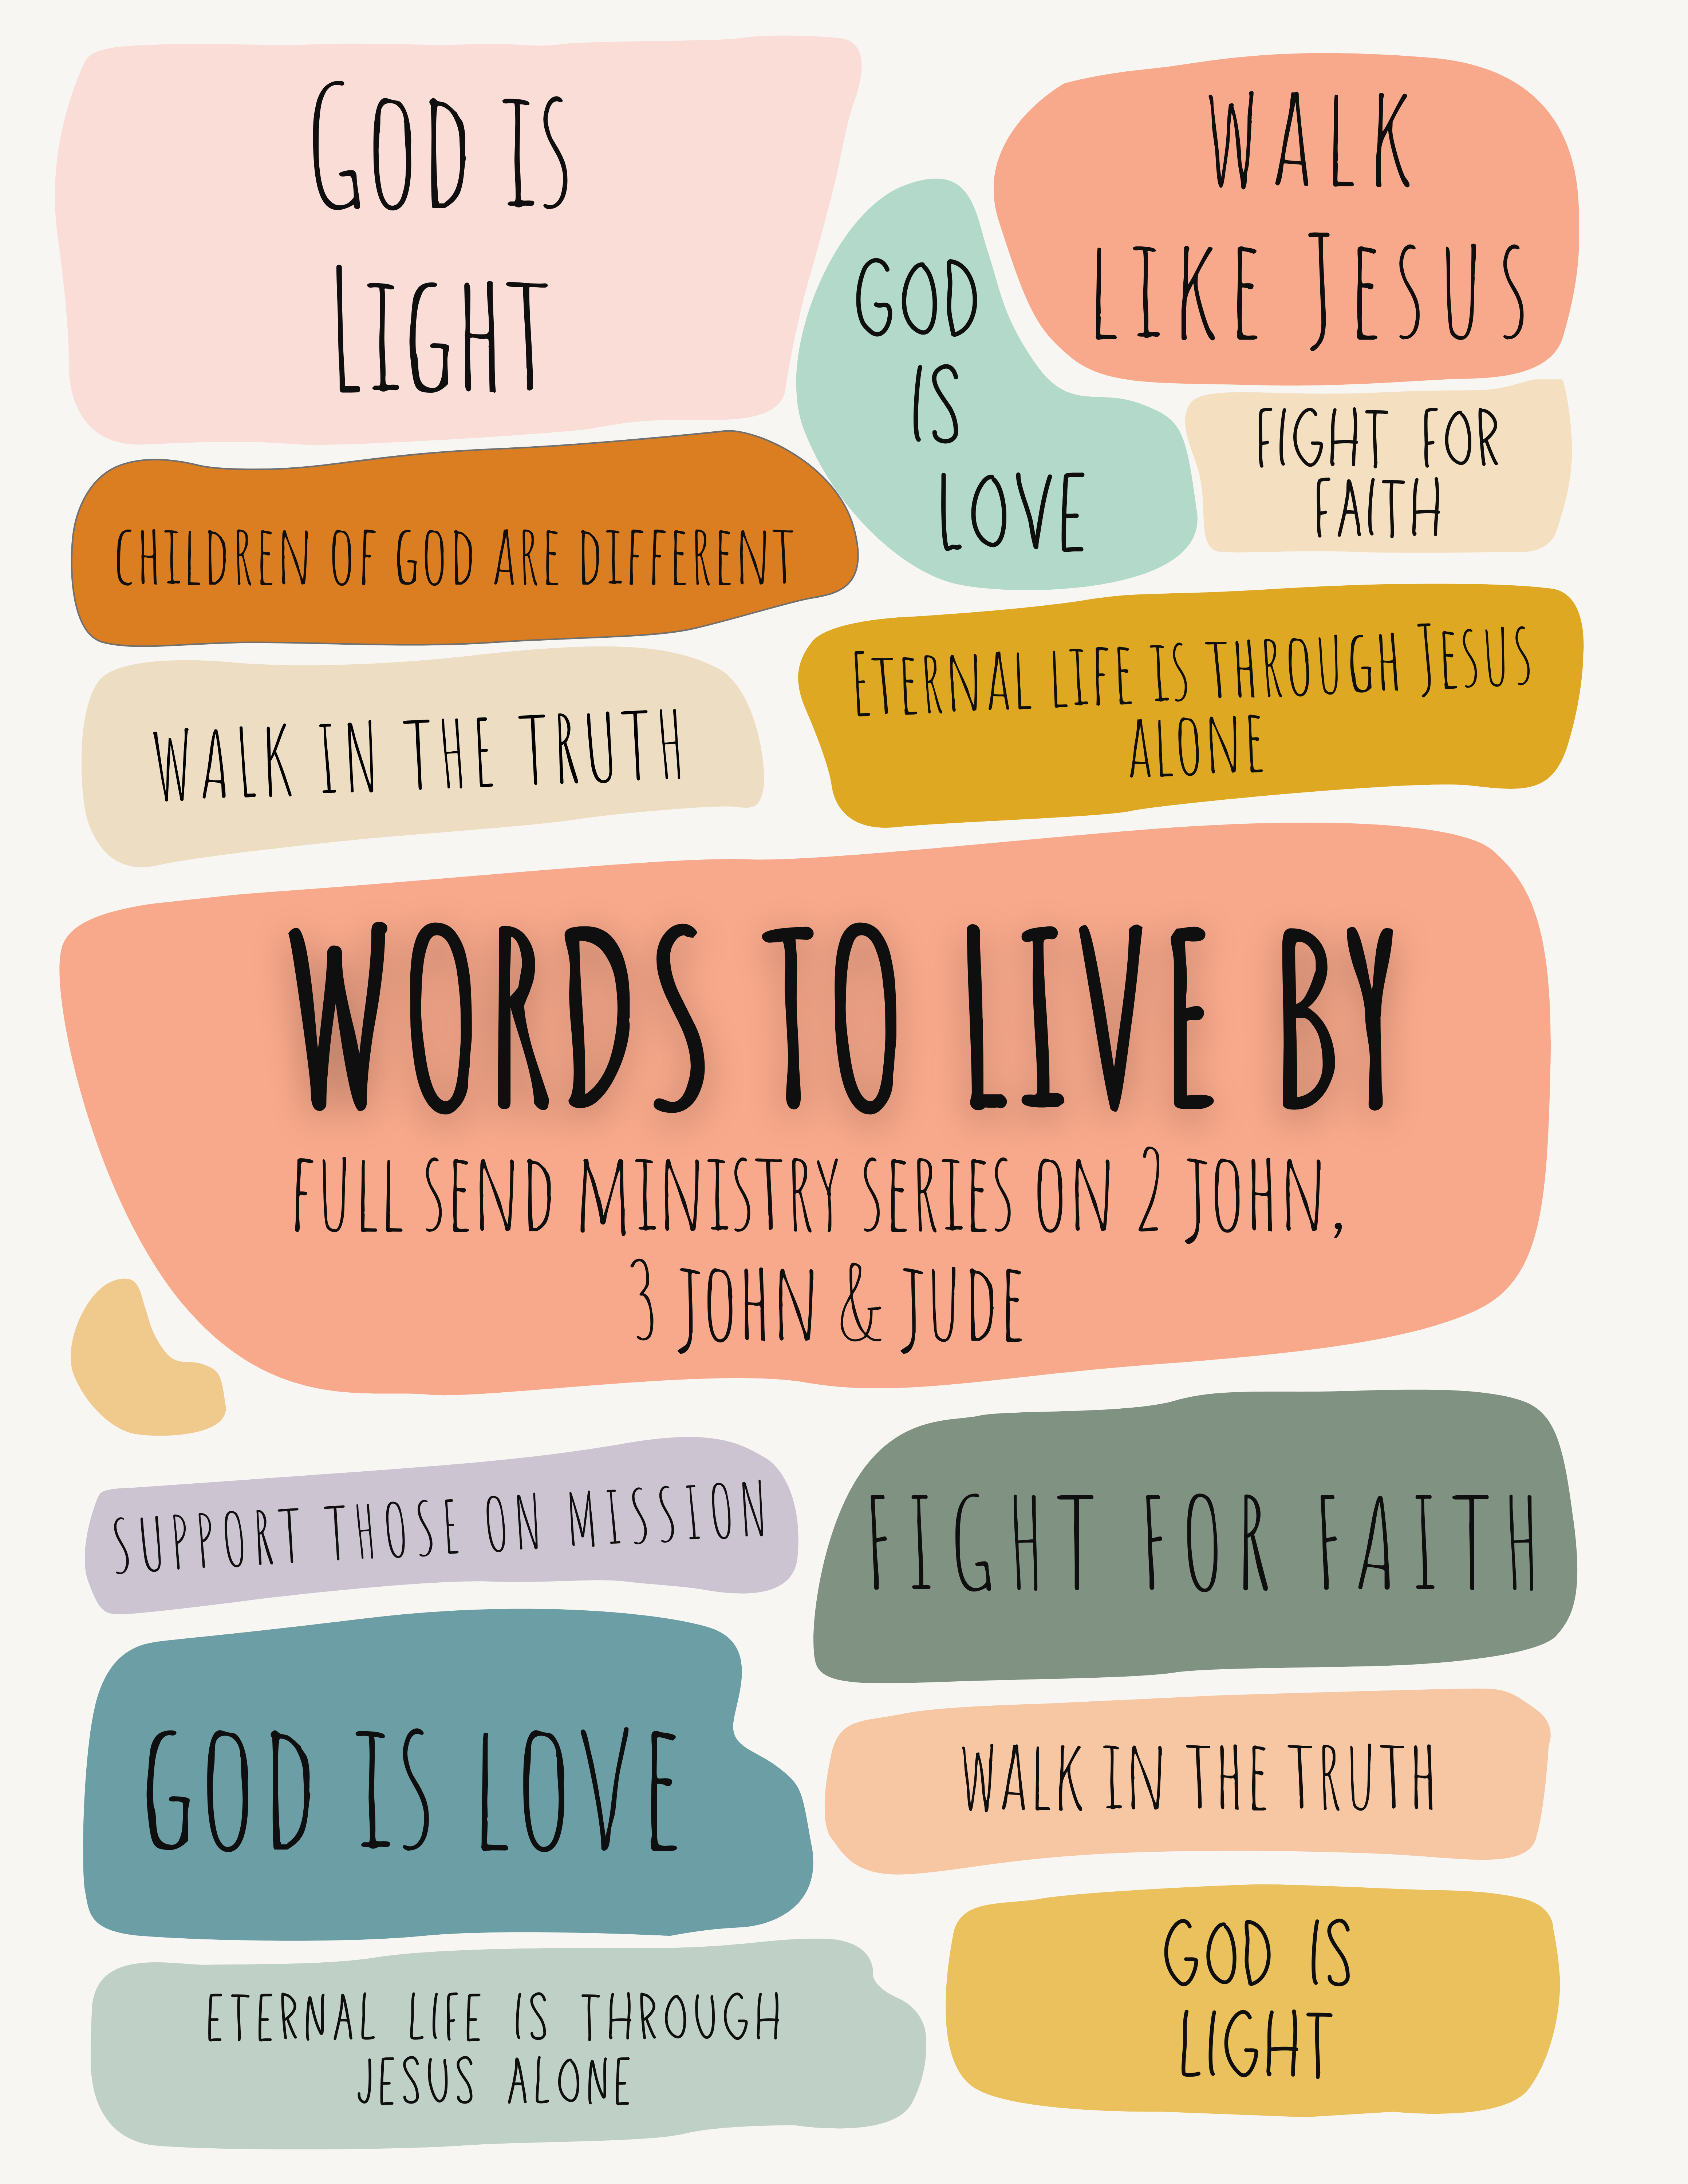 GOD IS
LIGHT
WALK
LIKE JESUS
GOD
IS
LOVE
FIGHT FOR
FAITH
CHILDREN OF GOD ARE DIFFERENT
ETERNAL LIFE IS THROUGH JESUS
ALONE
WALK IN THE TRUTH
WORDS TO LIVE BY
FULL SEND MINISTRY SERIES ON 2 JOHN,
3 JOHN & JUDE
SUPPORT THOSE ON MISSION
FIGHT FOR FAITH
GOD IS LOVE
WALK IN THE TRUTH
GOD IS
LIGHT
ETERNAL LIFE IS THROUGH
JESUS ALONE